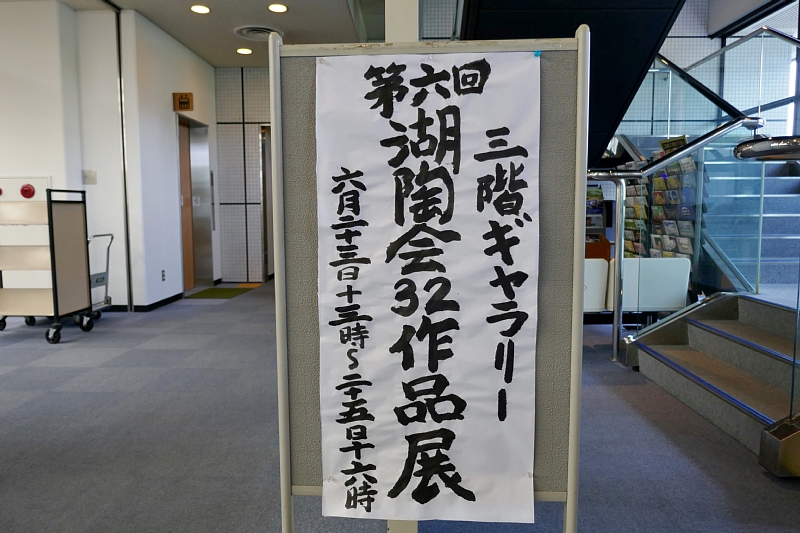 三階ギャラリー
第六回
湖陶会32作品展
六月二十三日十三時~二十五日十六時